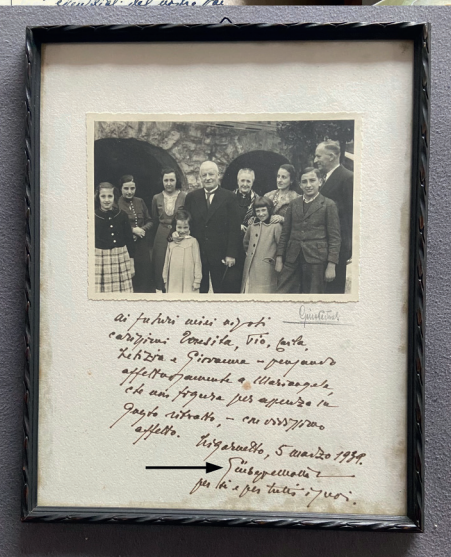 Ai futuri miei nipoti
carissimi Teresita, Pio, Carla,
Letizia e Giovanna – pensando
affettuosamente a Mariangela,
che non figura per assenza in
questo ritratto, – con vivissimo
affetto. Ligornetto, 5 marzo 1939.
Giuseppe Motta
per sé e per tutti i suoi.